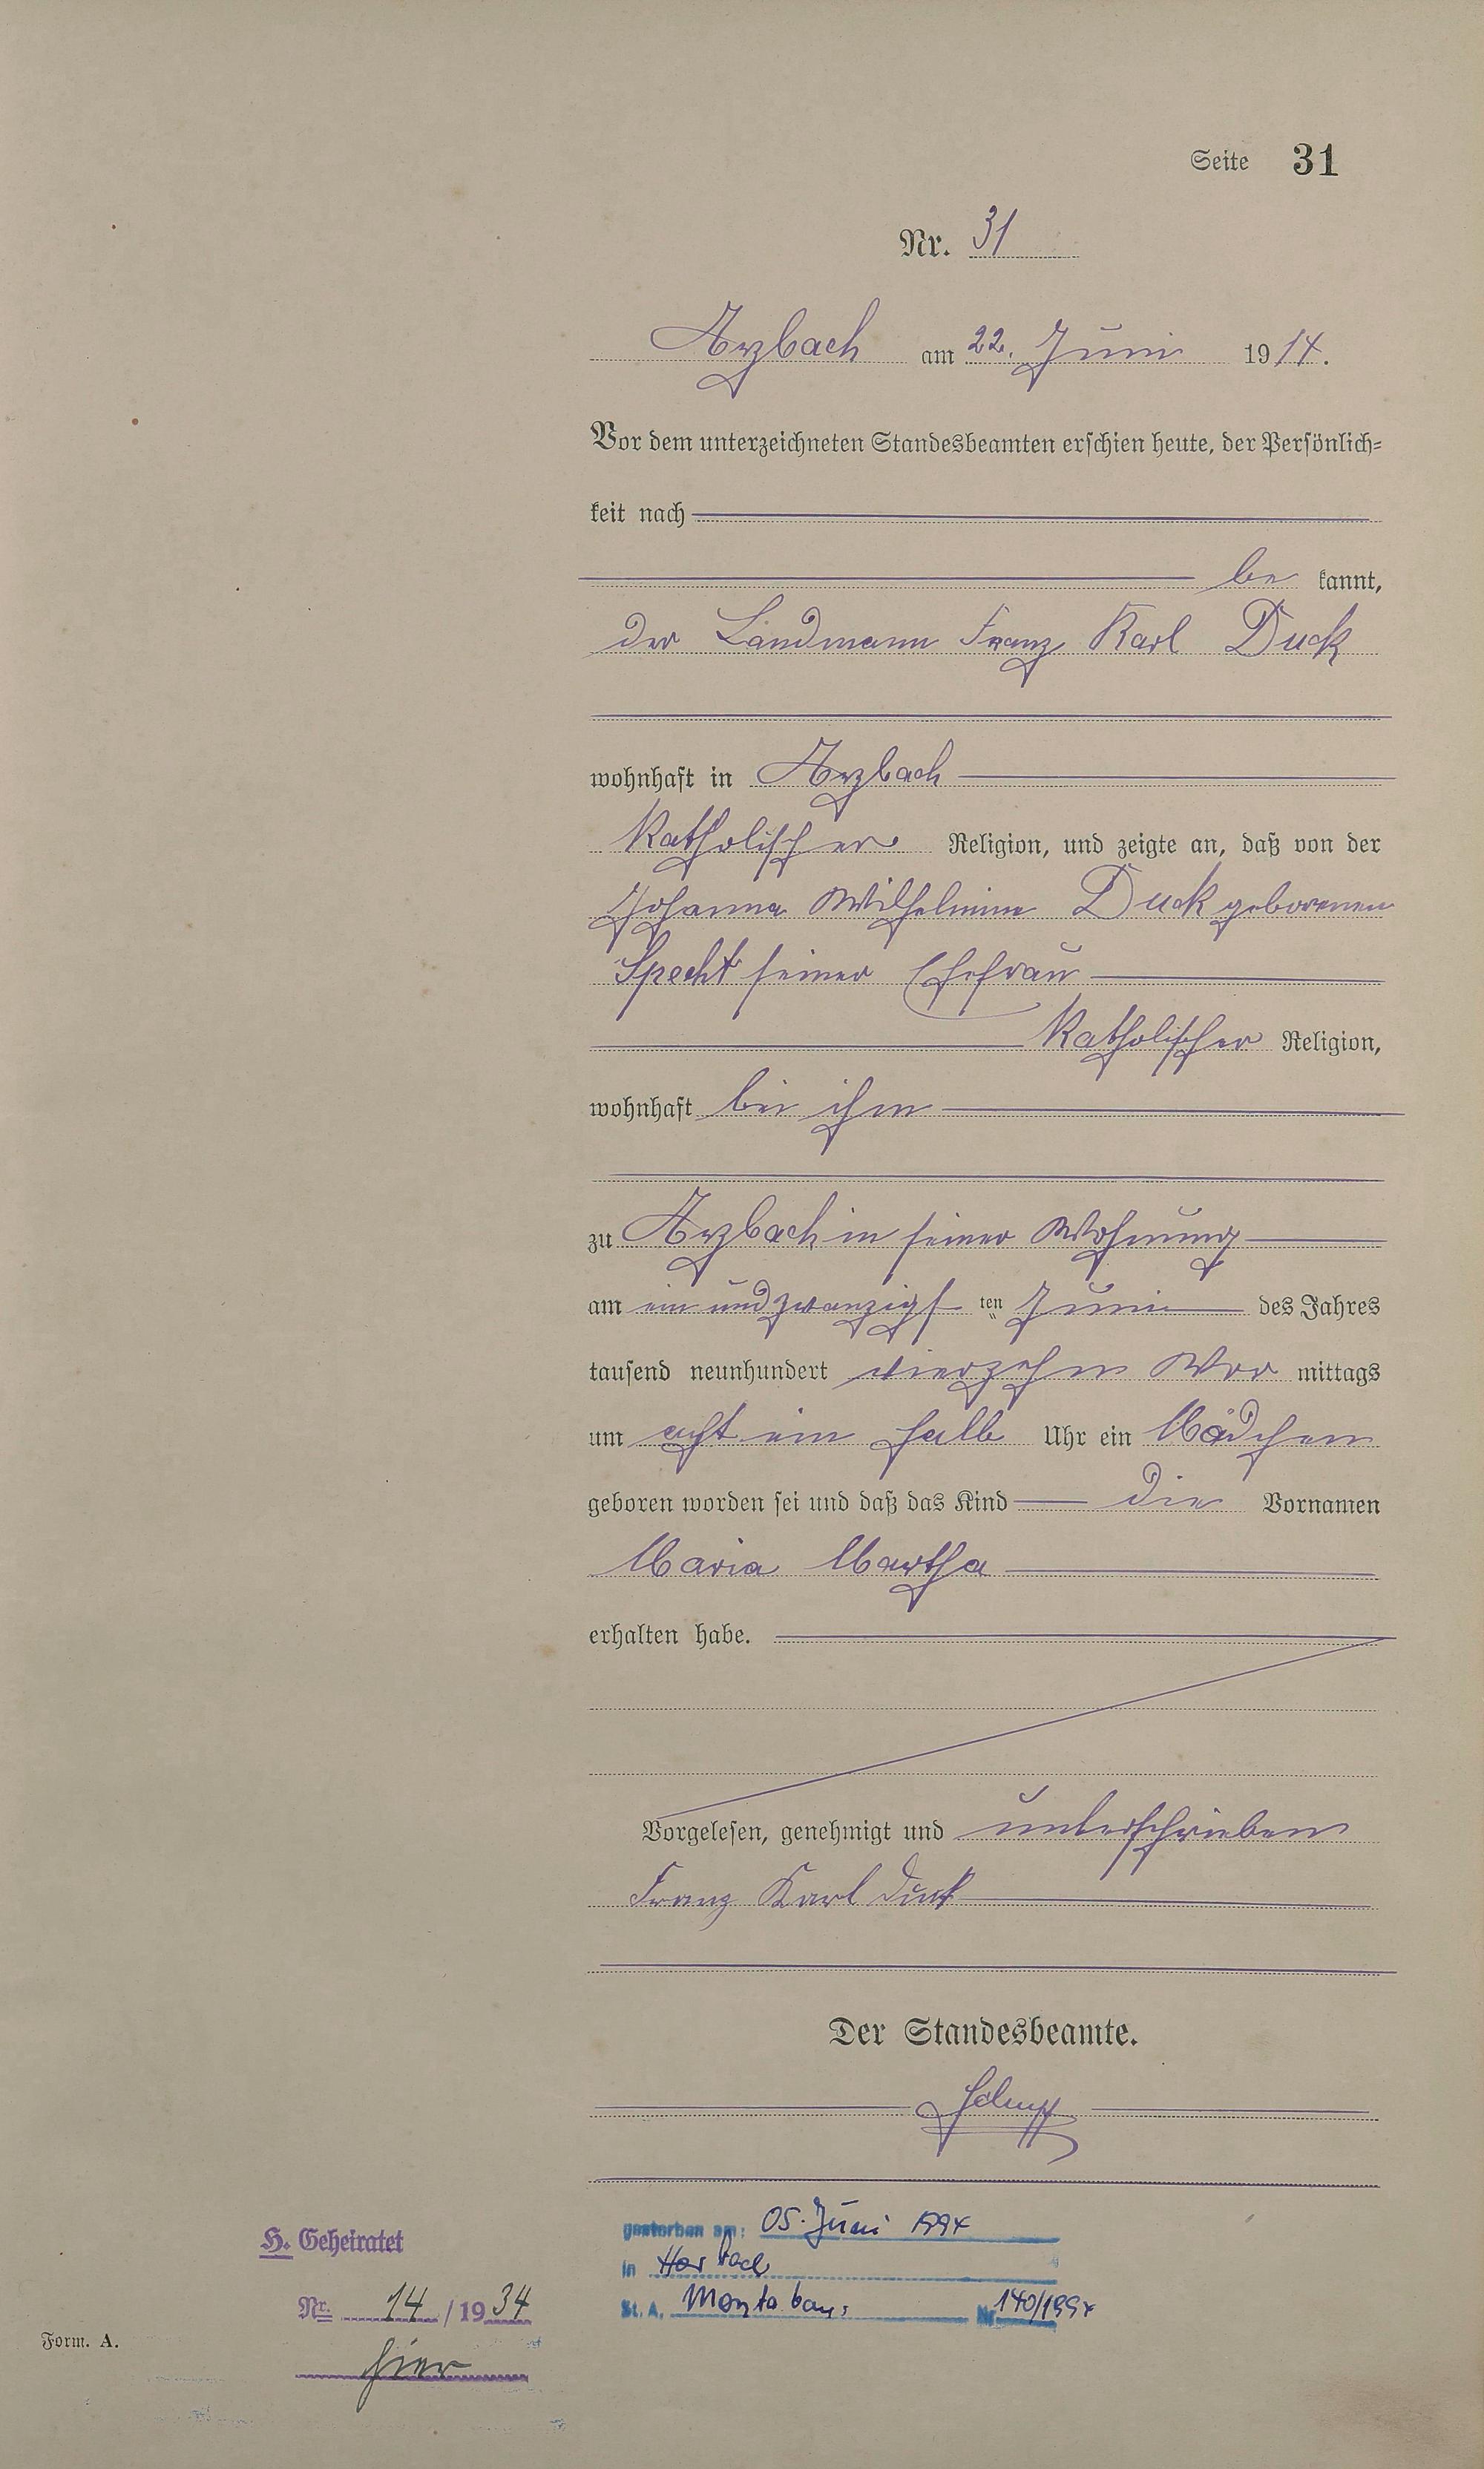 Seite 31
Nr. 31
Arzbach am 22. Juni 1914.
Vor dem unterzeichneten Standesbeamten erschien heute, der Persönlich-
keit nach
be kannt,
der Landmann Franz Karl Duck
wohnhaft in Arzbach
katholischer Religion, und zeigte an, daß von der
Johanna Wilhelmine Duck geborenen
Specht seiner Ehefrau
katholischer Religion,
wohnhaft bei ihm
zu Arzbach in seiner Wohnung
am ein und zwanzigs ten Juni des Jahres
tausend neunhundert vierzehn Vor mittags
um acht ein halb Uhr ein Mädchen
geboren worden sei und daß das Kind die Vornamen
Maria Martha
erhalten habe.
Vorgelesen, genehmigt und unterschrieben
Franz Karl Duck
Der Standesbeamte.
gestorben am: 05. Juni 1994
H. Geheiratet
in Horbach
Nr. 14 / 19 34
St. A. Montabaur Nr. 140/1994
Form. A.
hier